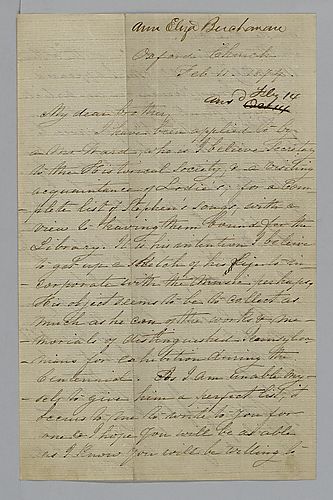 Ann Eliza Buchanan
Oxford Church
Feb 11. 1874.
Ans'd Feby 14
My dear brother,
I have been applied to by
a Mr Ward, who is I believe Secretary
to the Historical Society, & a visiting
acquaintance of Lodie's; for a com-
-plete list of Stephen's songs, with a
view to having them bound for the
Library. It is his intention I believe
to get up a sketch of his life to in-
-corporate with the music perhaps,
His object seems to be to collect as
much as he can of the works & me-
-morials of distinguished Pennsylva-
-nians for exhibition during the
Centennial. As I am unable my-
-self to give him a perfect list, it
occurs to me to write to you for
one & I hope you will be as able
as I know you will be willing to